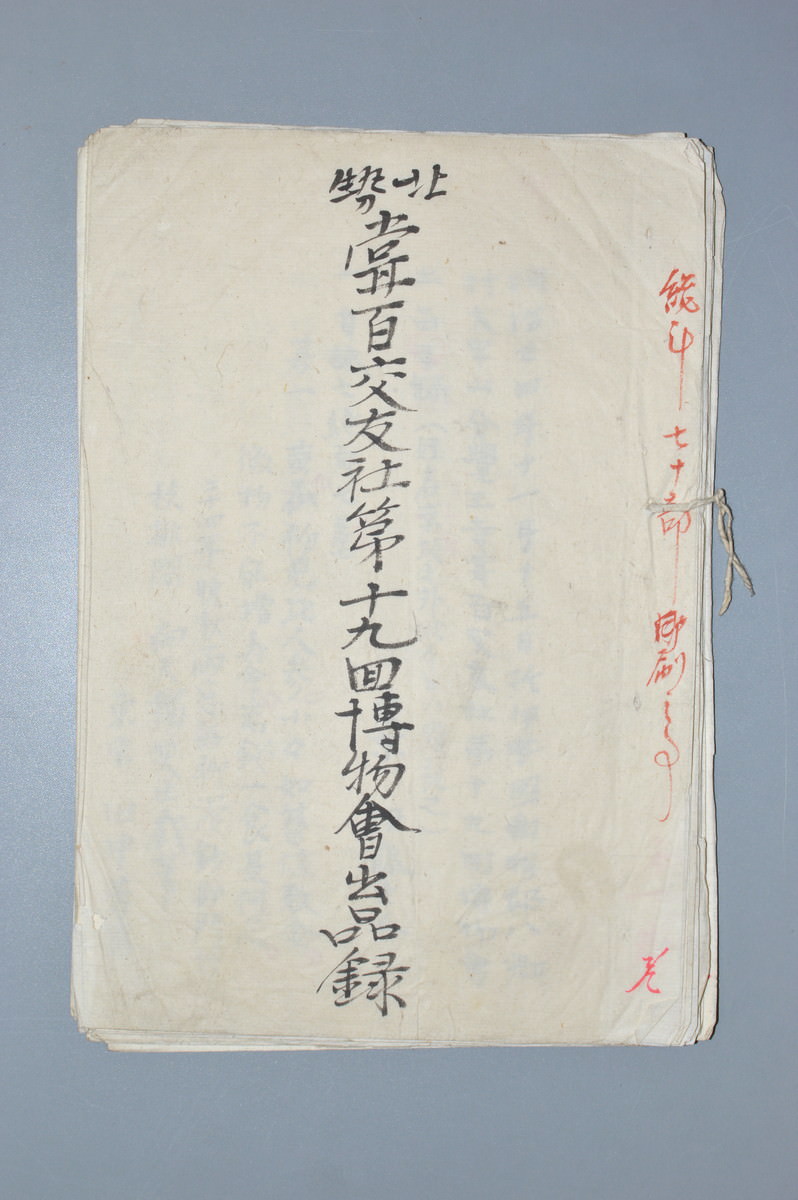 総計七十部印刷之事
北勢
甞百交友社第十九回博物會出品録